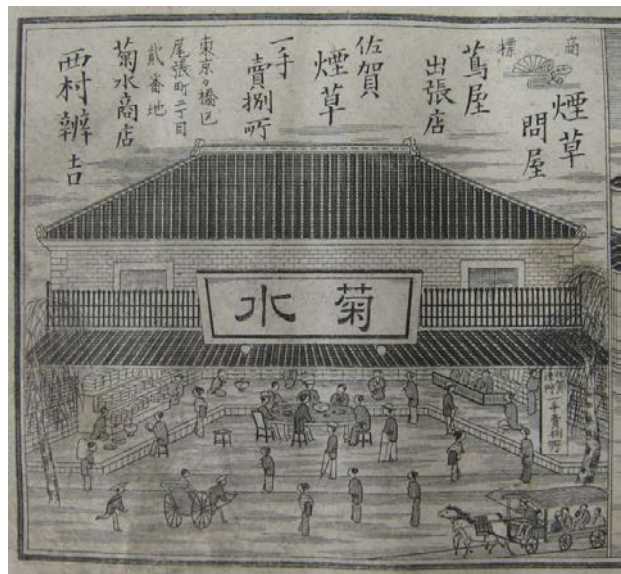 商標
煙草
問屋
蔦屋
出張店
佐賀
煙草
一手
賣捌所
東京々橋区
尾張町二丁目
貳番地
菊水商店
西村辨吉
菊水
一手賣捌所